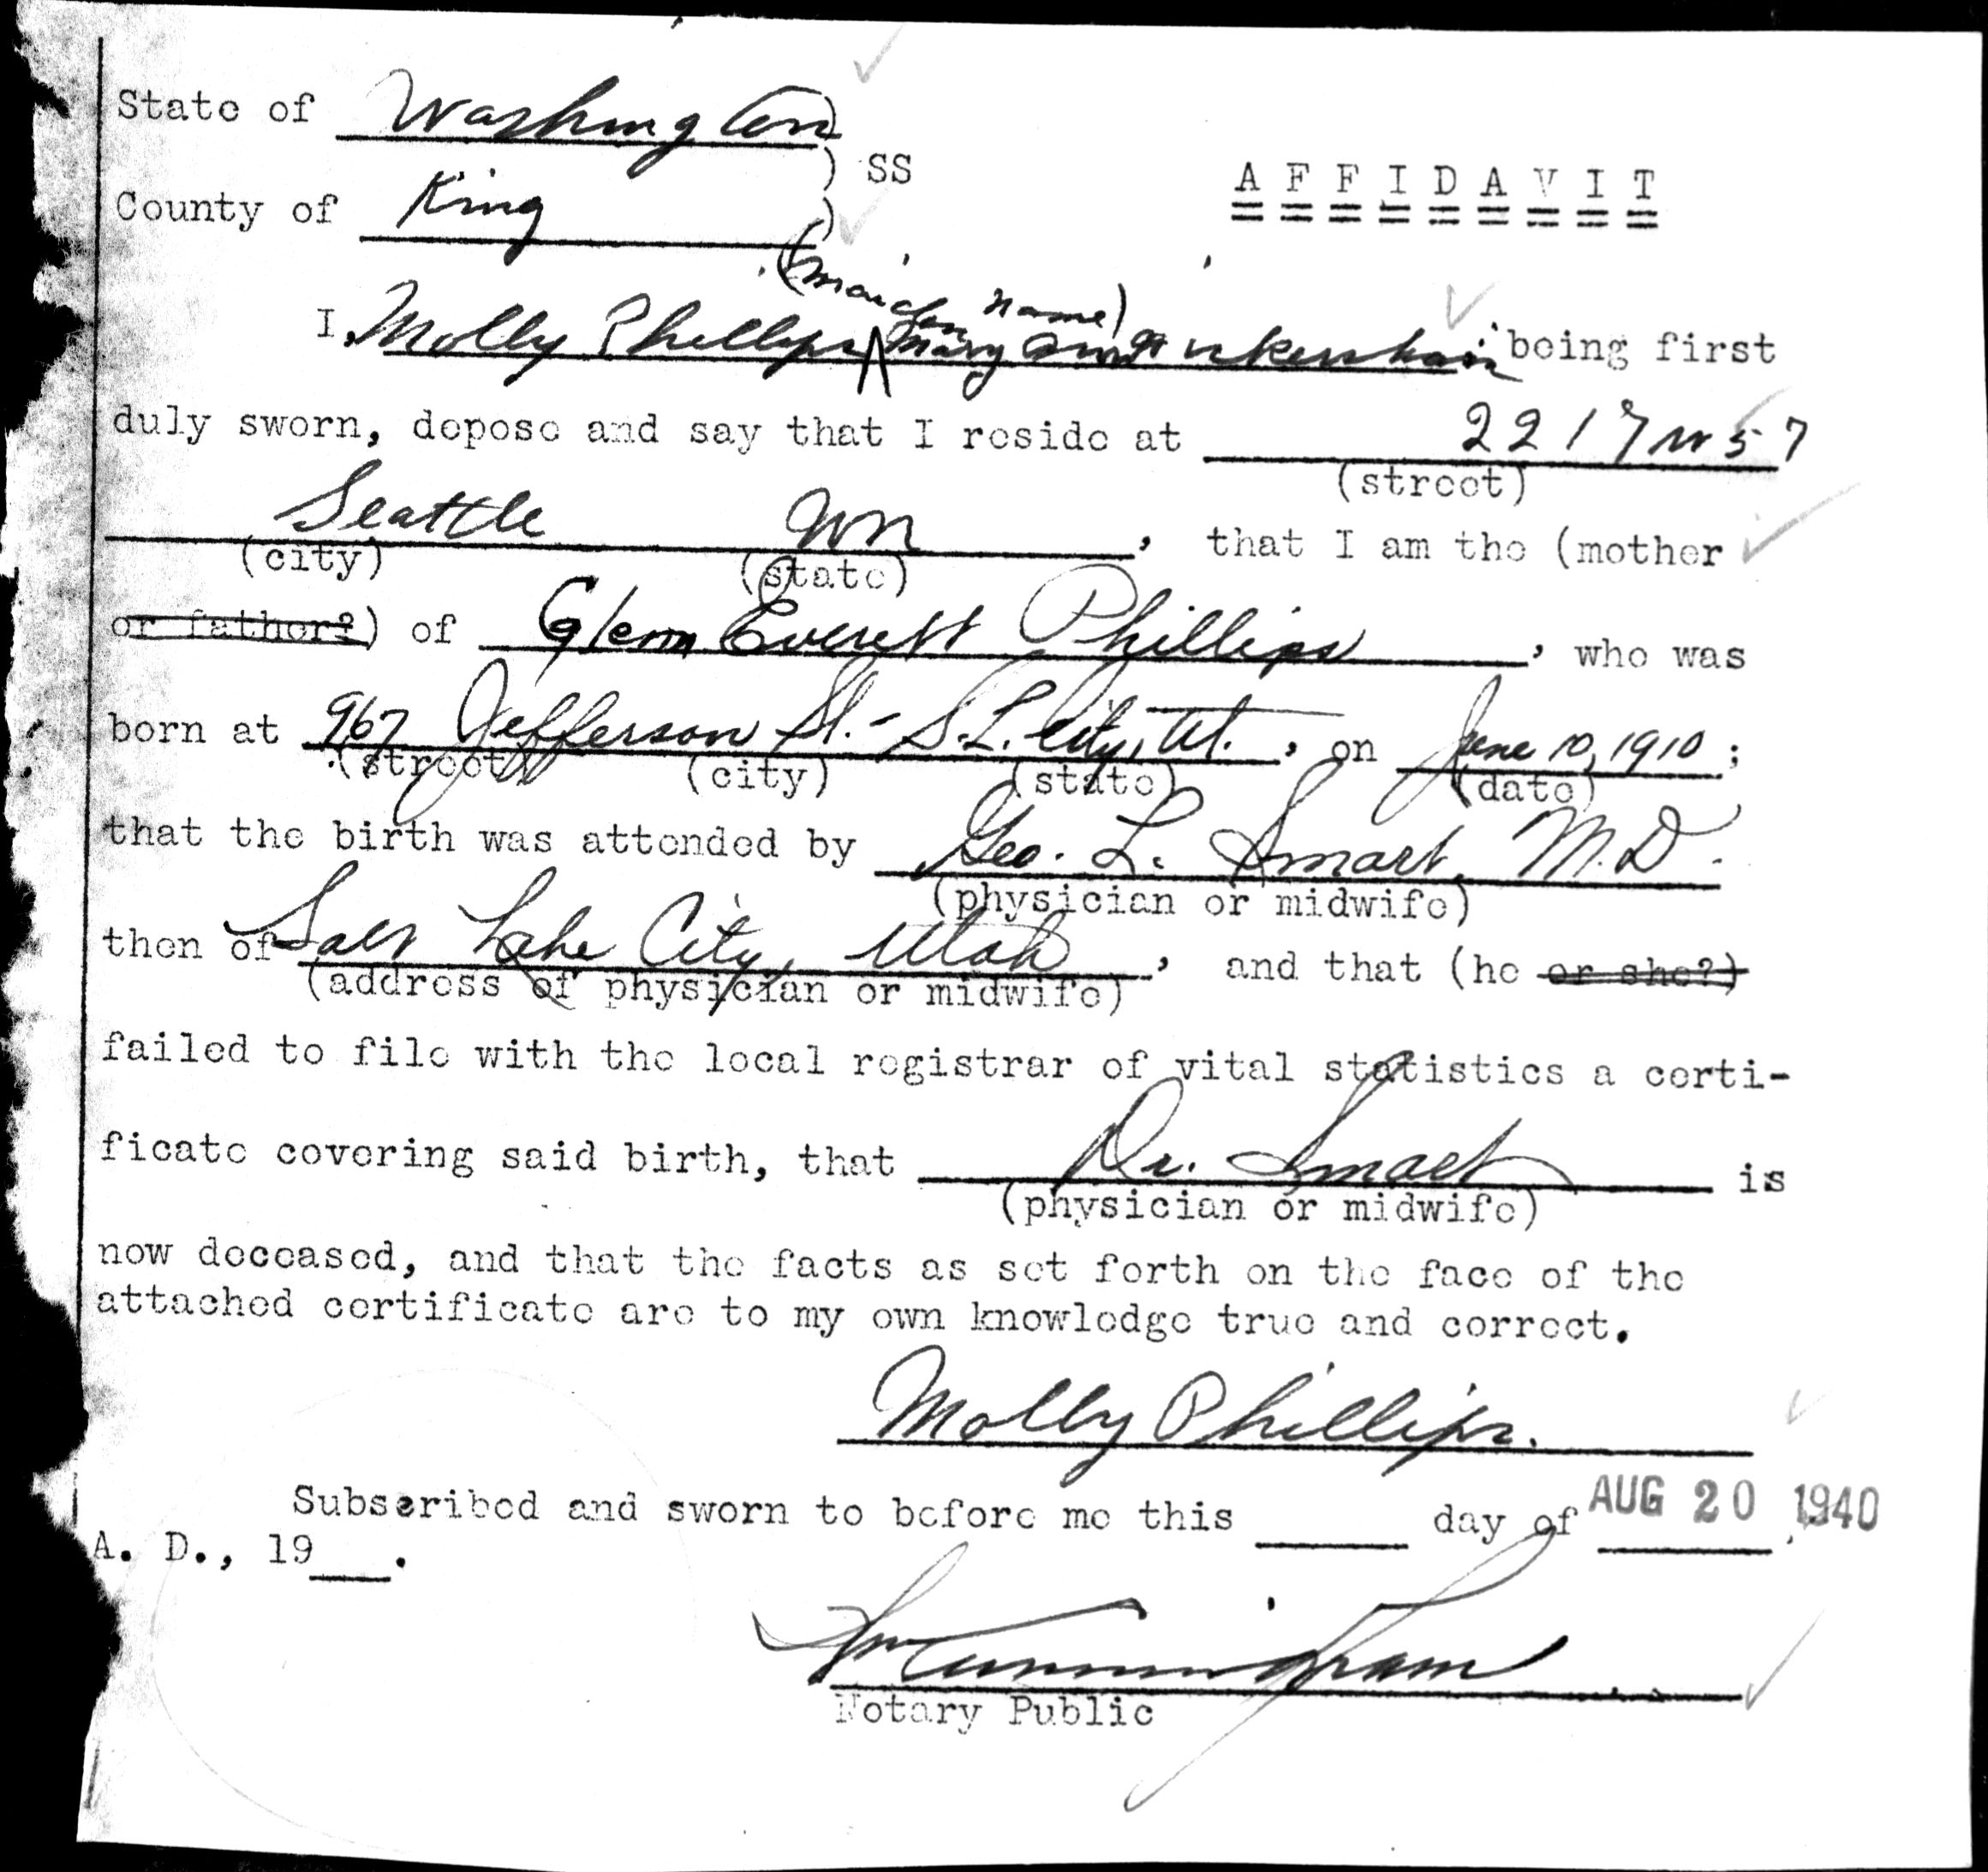 State of Washington )
) SS
County of King )
A F F I D A V I T
(maiden name)
I, Molly Phillips Mary Ann being first
duly sworn, depose and say that I reside at 2217 W 57
(street)
Seattle Wn , that I am the (mother
(city) (state)
or father?) of Glenn Everett Phillips , who was
born at 967 Jefferson St. - S.L. City, Ut. , on June 10, 1910 ;
(street) (city) (state) (date)
that the birth was attended by Geo. L. Smart, M.D.
(physician or midwife)
then of Salt Lake City, Utah , and that (he or she?)
(address of physician or midwife)
failed to file with the local registrar of vital statistics a certi-
ficate covering said birth, that Dr. Smart is
(physician or midwife)
now deceased, and that the facts as set forth on the face of the
attached certificate are to my own knowledge true and correct.
Molly Phillips.
Subscribed and sworn to before me this ____ day of AUG 20 , 1940
A. D., 19__.
Wm Cunningham
Notary Public